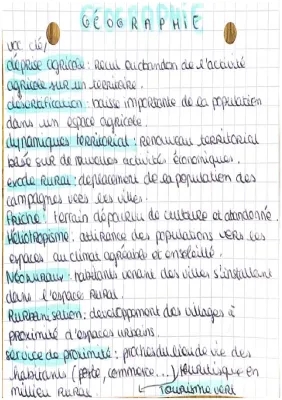 GÉOGRAPHIE
voc clé,
déprise agricole : recul ou abandon de l'activité
agricole sur un territoire.
désertification : baisse importante de la population
dans un espace agricole.
dynamiques territorial : renouveau territorial
basé sur de nouvelles activités économiques.
exode rural : déplacement de la population des
campagnes vers les villes.
Friche : terrain dépourvu de culture et abandonné.
Héliotropisme : attirance des populations vers les
espaces au climat agréable et ensoleillé.
Néoruraux : habitants venant des villes s'installant
dans l'espace rural.
Rurbanisation : développement des villages à
proximité d'espaces urbains.
service de proximité : proches du lieu de vie des
habitants (poste, commerce...) touristique en
milieu rural. Tourisme vert